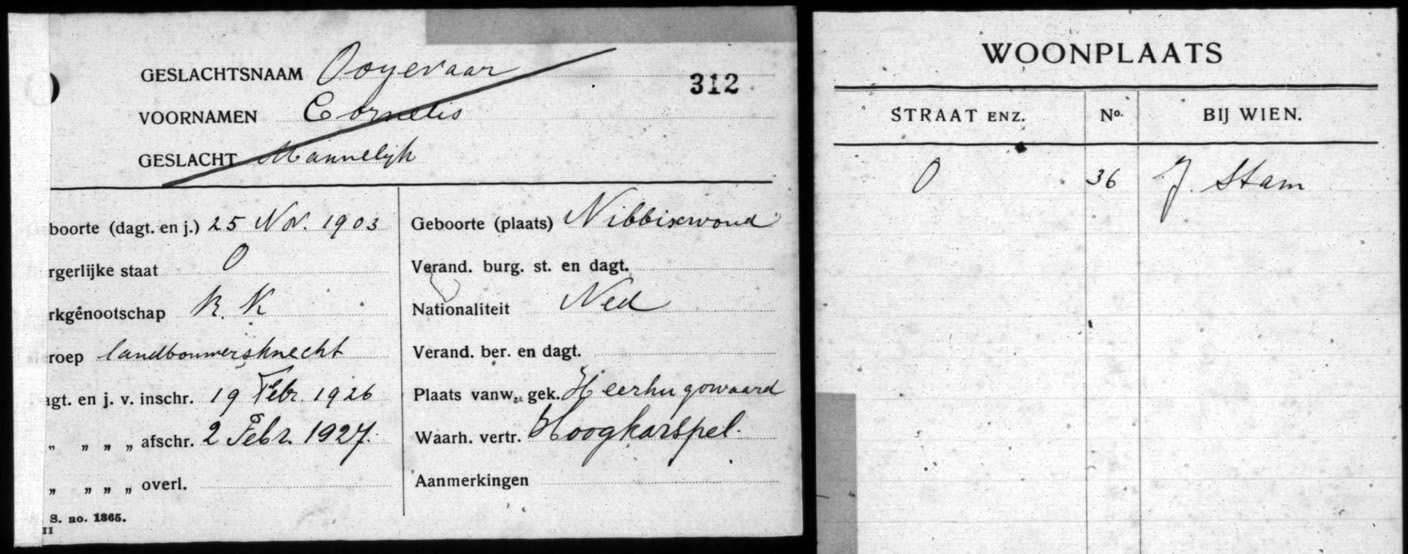 O
GESLACHTSNAAM Ooyevaar
312
VOORNAMEN Cornelis
GESLACHT Mannelijk
boorte (dagt. en j.) 25 Nov. 1903
rgerlijke staat O
rkgenootschap R K
roep landbouwersknecht
agt. en j. v. inschr. 19 Febr. 1926
„ „ „ „ afschr. 2 Febr. 1927.
„ „ „ „ overl.
S. no. 1365.
II
Geboorte (plaats) Nibbixwoud
Verand. burg. st. en dagt.
Nationaliteit Ned
Verand. ber. en dagt.
Plaats vanw. gek. Heerhugowaard
Waarh. vertr. Hoogkarspel.
Aanmerkingen
WOONPLAATS
STRAAT ENZ. No. BIJ WIEN.
O 36 J Stam